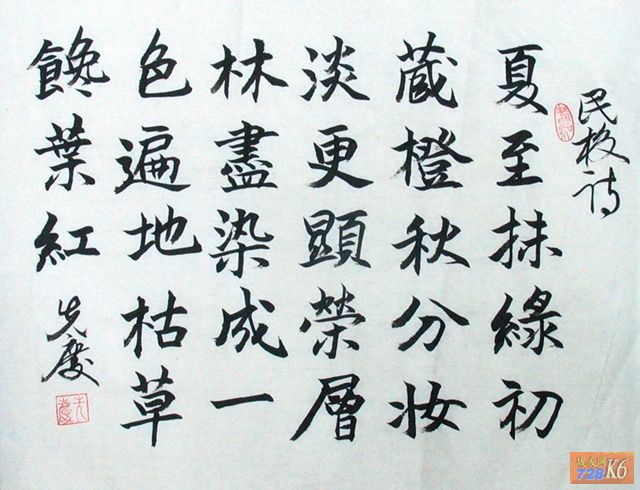 民校诗
夏至抹綠初
蔵橙秋分妝
淡更顯榮層
林盡染成一
色遍地枯草
馋葉紅
先慶
战友网
728K6